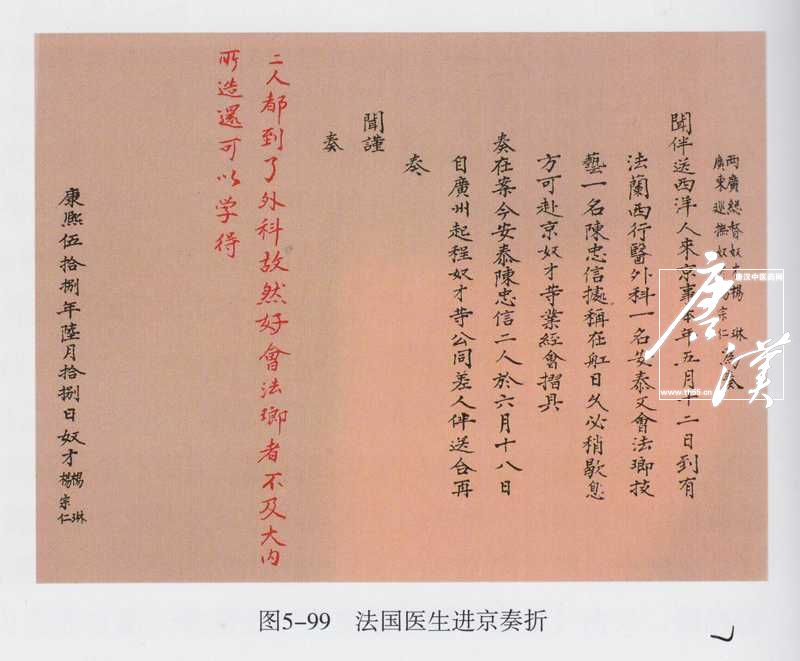 兩廣總督奴才楊 琳
廣東巡撫奴才楊宗仁為奏
聞伴送西洋人來京事本年五月十二日到有
法蘭西行醫外科一名安泰又會法瑯技
藝一名陳忠信據稱在舡日久必稍歇息
方可赴京奴才等業經會摺具
奏在案今安泰陳忠信二人於六月十八日
自廣州起程奴才等公同差人伴送合再
奏
聞謹
奏
二人都到了外科故然好會法瑯者不及大內
所造還可以学得
康熙伍拾捌年陸月拾捌日奴才楊 琳
楊宗仁
唐漢
唐汉中医药网
www.th55.cn
图5-99 法国医生进京奏折